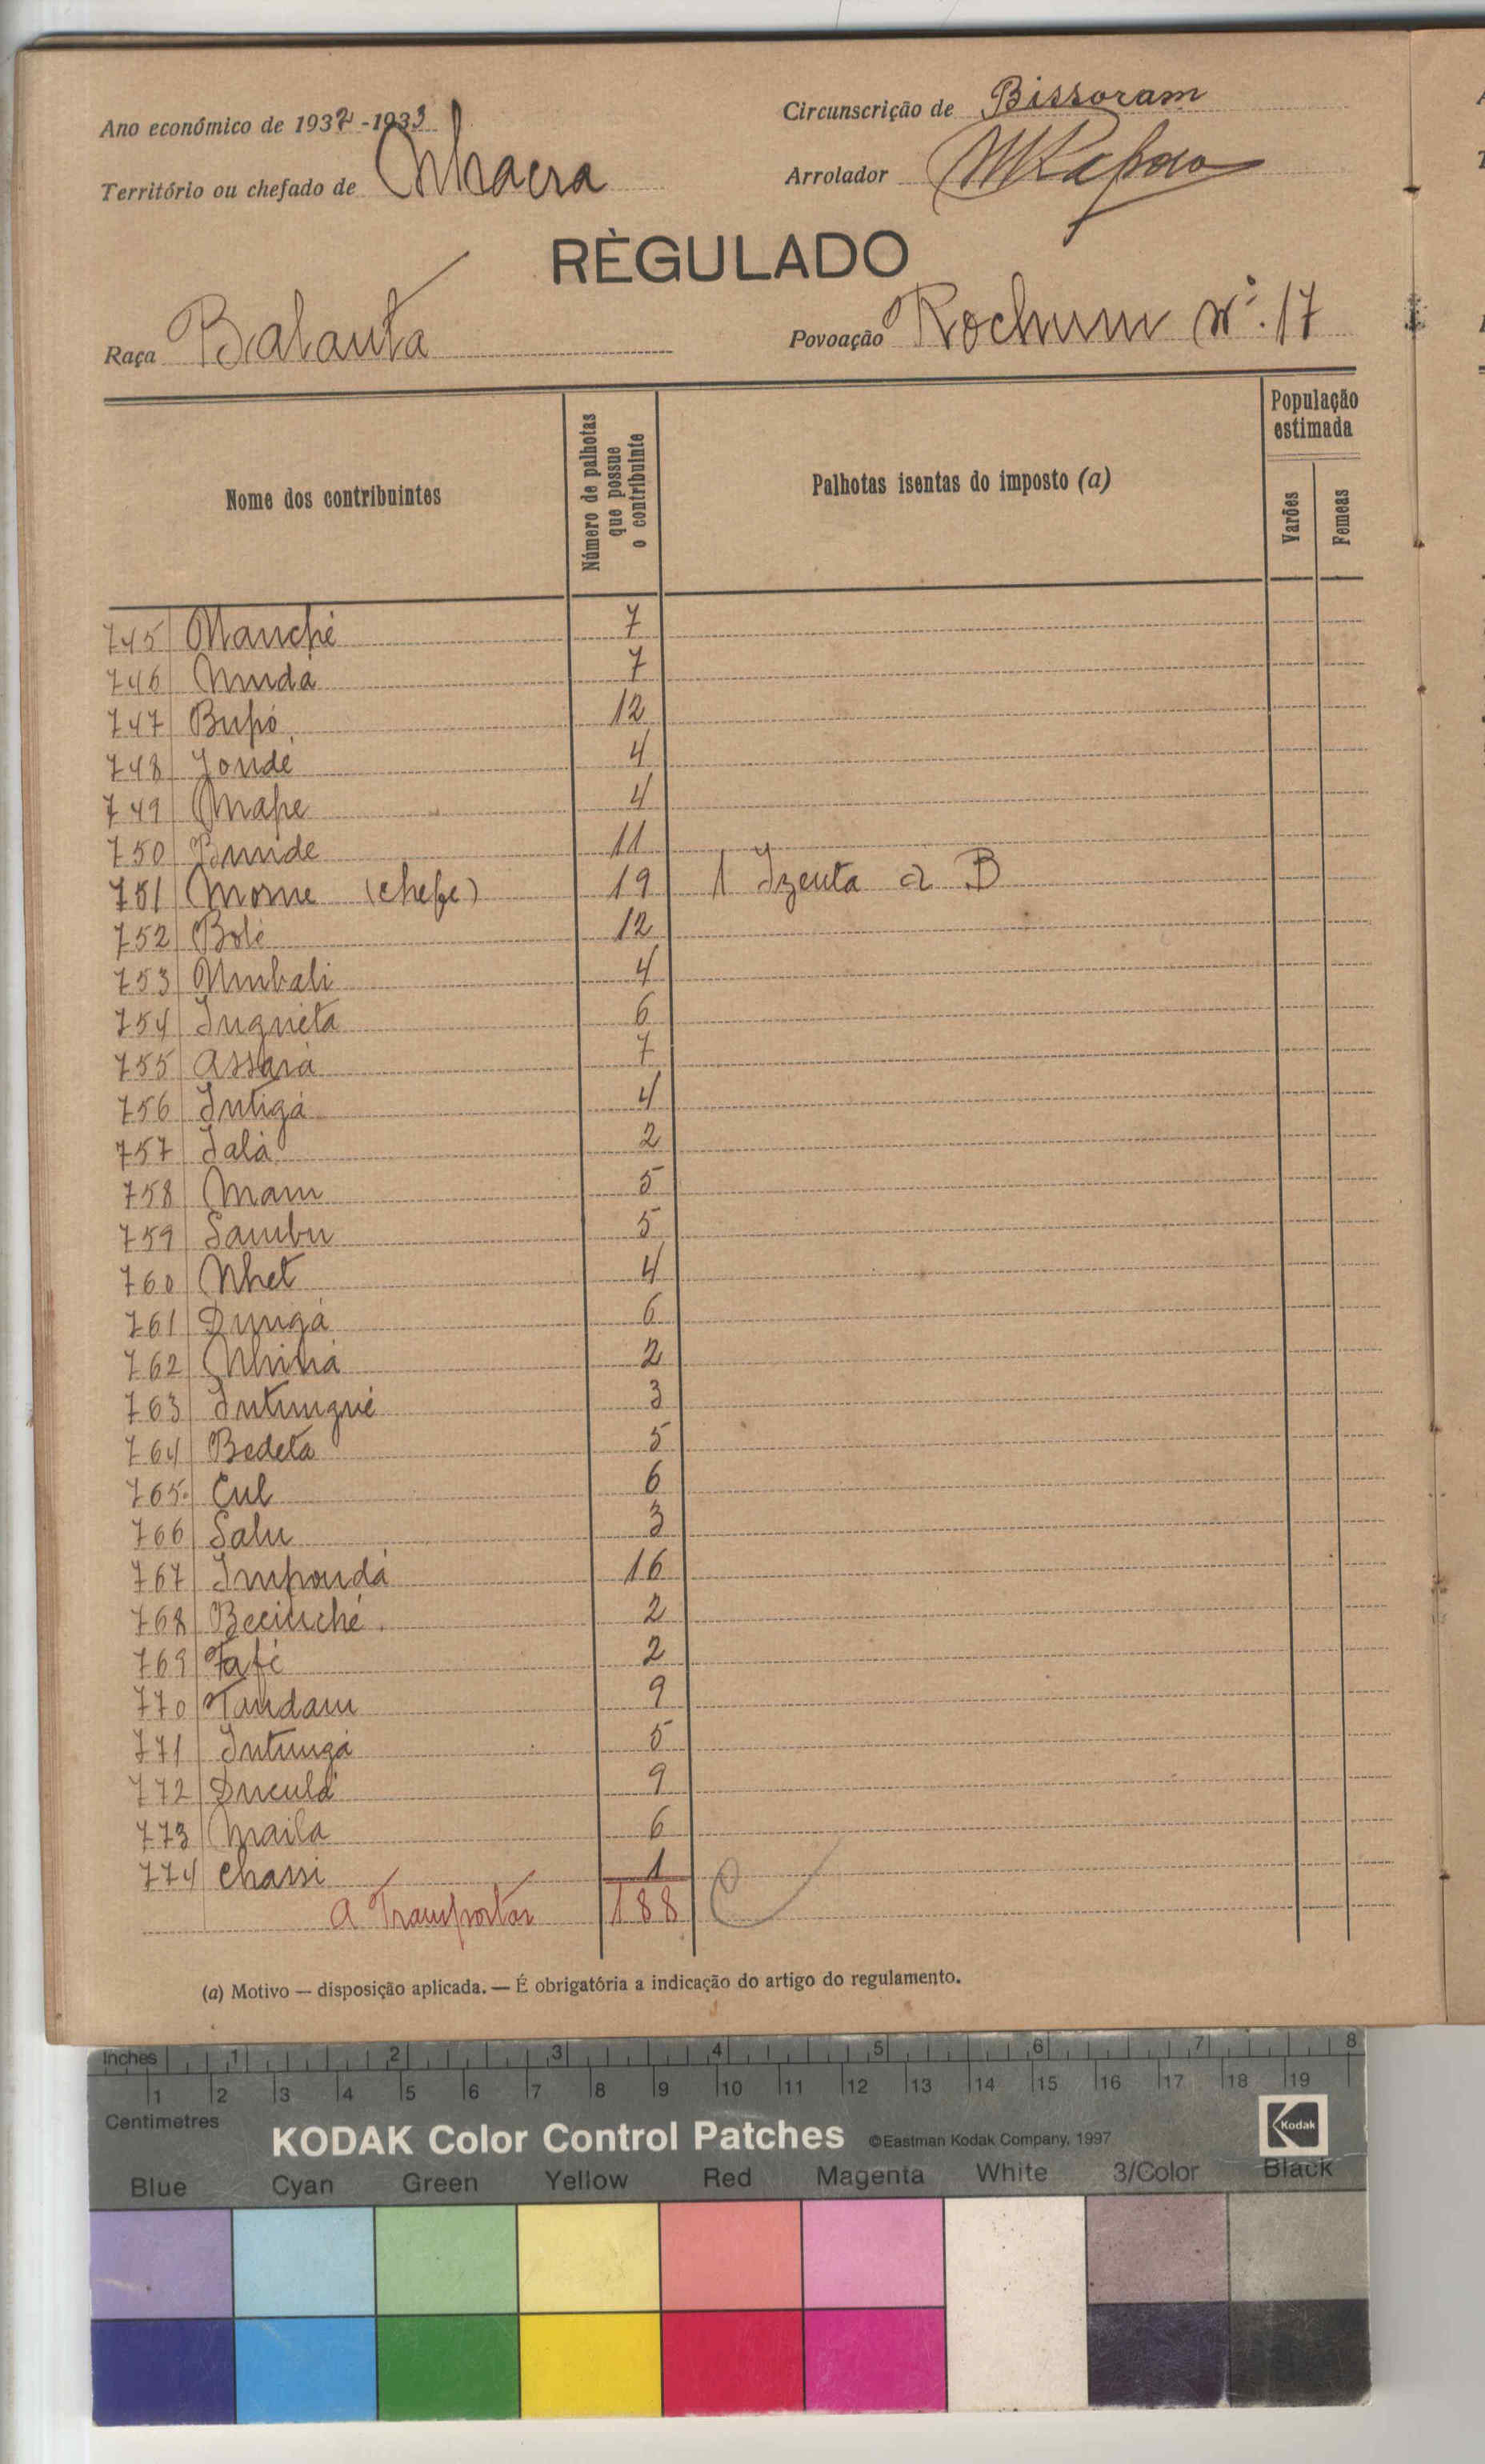 Ano económico de 1932-1933
Circunscrição de Bissoram
Território ou chefado de Nhacra
Arrolador
RÈGULADO
Raça Balanta
Povoação Rochum Nº. 17
Nome dos contribuintes
Número de palhotas que possue o contribuinte
Palhotas isentas do imposto (a)
População estimada
Varões
Femeas
745 Manché 7
746 Mudá 7
747 Bupó 12
748 Jondé 4
749 Mape 4
750 Bunde 11
751 Morne (chefe) 19 1 Izenta a B
752 Bolé 12
753 Umbali 4
754 Inquéta 6
755 Assará 7
756 Intigá 4
757 Jalá 2
758 Mam 5
759 Sambu 5
760 Nhet 4
761 Dungá 6
762 2
763 Intungué 3
764 Bedeta 5
765 Cul 6
766 Salu 3
767 Impondá 16
768 Becinché 2
769 Tafé 2
770 Tandam 9
771 Intungá 5
772 Duculá 9
773 Maila 6
774 Chassi 1
A Transportar 188
(a) Motivo — disposição aplicada. — É obrigatória a indicação do artigo do regulamento.
Inches 1 2 3 4 5 6 7 8
1 2 3 4 5 6 7 8 9 10 11 12 13 14 15 16 17 18 19
Centimetres
KODAK Color Control Patches ©Eastman Kodak Company, 1997 Kodak
Blue Cyan Green Yellow Red Magenta White 3/Color Black